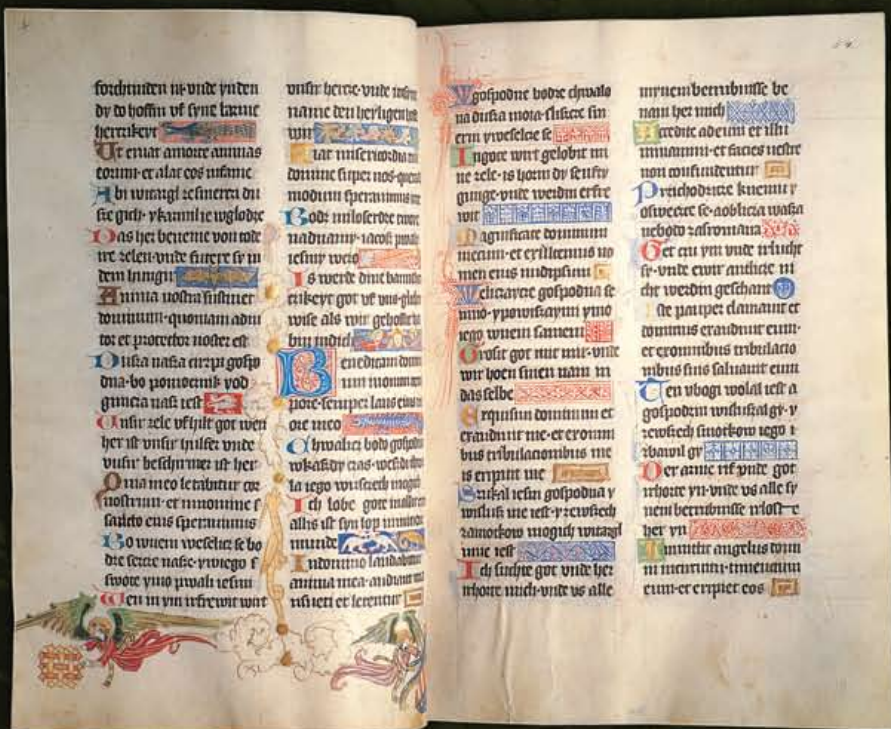 forchtinden in vnde ynden
dy do hoffin vf syne barm
herczikeyt
Ut eruat a morte animas
eorum et alat eos in fame
Abi witargl ze smercy du
sze gich y karmil ie w glodze
Das her beneme von tode
ire zelen vnde fuere sy in
dem hungir
Anima nostra sustinet
dominum quoniam adiu
tor et protector noster est
Dusza nasza cirzpi gospo
dna bo pomocznik y od
gimcza nasz iest
Unsir zele vf hilt got wen
her ist vnsir hulfer vnde
vnsir beschirmer ist her
Quia in eo letabitur cor
nostrum et in nomine s
sancto eius sperauimus
Bo w niem weselicz se bo
dze sercze nasze y w iego s
swote ymo pwali iesmi
Wen in ym irfrewit wirt
vnsir hercze vnde in syne
name den heyligen
wir
Fiat misericordia
domine super nos quem
modum sperauimus in te
Bodz miloserdze twoie
na nad namy iacosz pwali
iesmy w cio
Is werde dine barmh
czikeyt got vf vns glich
wise als wir gehoffit
bin in dich
Benedicam domi
num in omni tem
pore semper laus eius in
ore meo
Chwalicz bodo gospod
w kaszdy czas weszdi
la iego w usciech mogich
Ich lobe gote in allen
allis ist syn lop in mynem
munde
In domino laudabitur
anima mea audiant ma
nsueti et letentur
W gospodne bodze chwalo
na duszka moia sliszcze sm
erni y weselcze se
In gote wirt gelobit mi
ne zele is horin dy senfty
ginge vnde werdin erfre
wit
Magnificate dominum
mecum et exaltemus no
men eius in id ipsum
Weliczaycze gospodna se
mno y powiszaymy ymo
iego w niem samem
Grosit got mit mir vnde
wir hoen sinen nam in
das selbe
Exquisiui dominum et
exaudiuit me et ex omni
bus tribulacionibus me
is eripuit me
Szukal iesm gospodna y
wisluszal me iest y ze wszech
zamotkow mogich witargl
mie iest
Ich suchte got vnde her
irhorte mich vnde vs alle
mynem betrubnisse be
nam her mich
Accedite ad eum et illu
minamini et facies uestre
non confundentur
Przichodzicze k niemu y
oswecze se a oblicza wasza
ne bodo zasromana
Get czu ym vnde irlucht
sy vnde ewir anclicze ni
cht werdin geschant
Iste pauper clamauit et
dominus exaudiuit eum
et ex omnibus tribulacio
nibus eius saluauit eum
Ten vbogi wolal iest a
gospodzin wisluszal gy y
ze wszech smotkow iego i
zbawil gy
Der arme rif vnde got
irhorte yn vnde vs alle sy
nem betrubnisse irloste
her yn
Inmittit angelus domi
ni in circuitu timencium
eum et eripiet eos